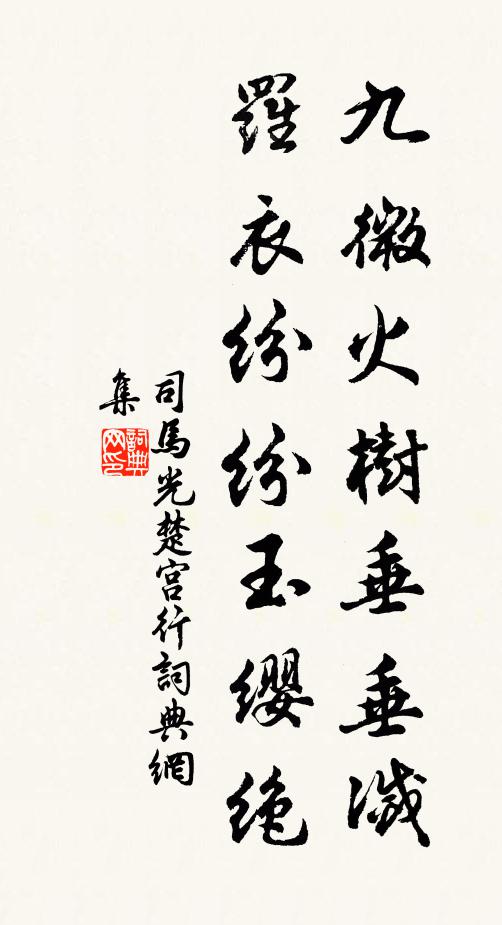 九微火樹垂垂滅
羅衣紛紛玉纓絶
司馬光楚宫行詞典網
集
詞典网印